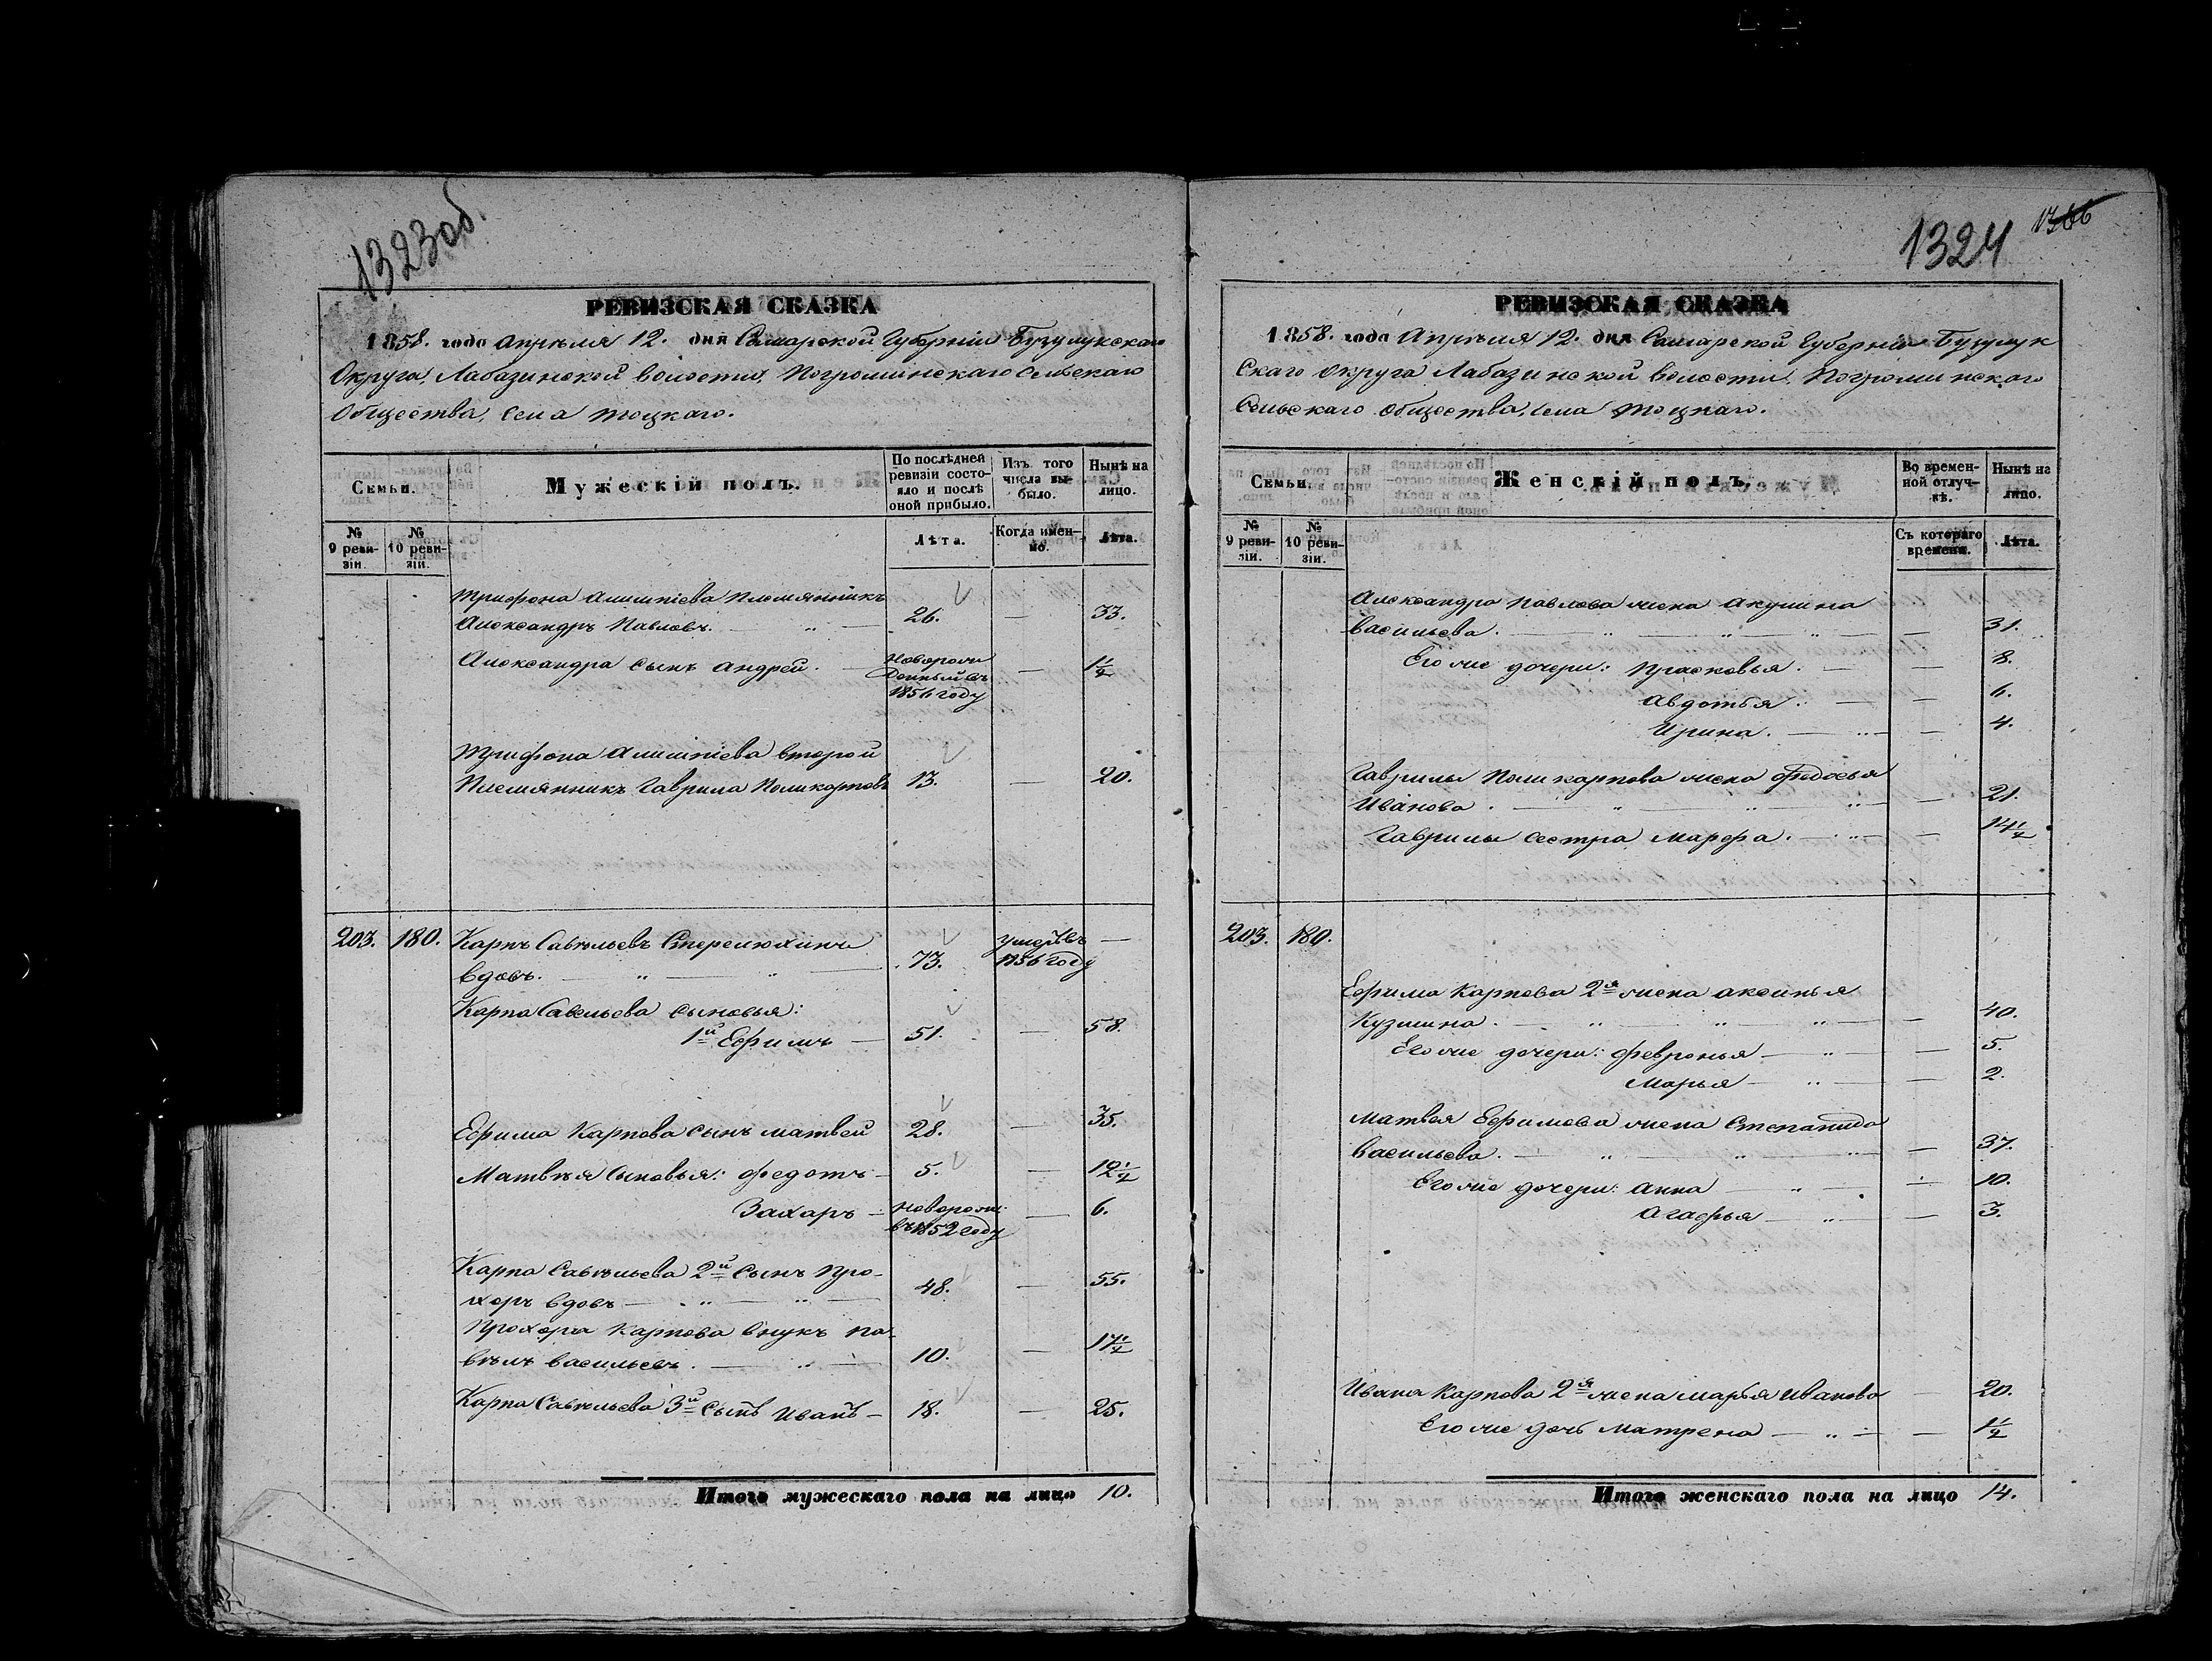 1323 об.
РЕВИЗСКАЯ СКАЗКА
1858. года Апрѣля 12. дня Самарской Губерніи Бузулукскаго
Округа, Лабазинской волости, Погроминскаго Сельскаго
Общества, Села Тоцкаго.
Семьи.
Мужескій полъ.
По послѣдней ревизіи состояло и послѣ оной прибыло.
Изъ того числа выбыло.
Нынѣ на лицо.
№ 9 ревизіи.
№ 10 ревизіи.
Лѣта.
Когда именно.
Лѣта.
Трифона Алимпіева племянникъ
Александръ Павловъ. — " — 26. — 33.
Александра сынъ Андрей. — новорожденный въ 1856 году — 1½
Трифона Алимпіева второй
Племянникъ Гаврила Поликарповъ 13. — 20.
203. 180. Карпъ Савѣльевъ
вдовъ. — " — " — 73. умеръ въ 1856 году —
Карпа Савельева сыновья:
1й Ефимъ — 51. — 58.
Ефима Карпова сынъ Матвей 28. — 35.
Матвѣя сыновья: Федотъ — 5. — 12½
Захаръ — новорож: въ 1852 году — 6.
Карпа Савѣльева 2й сынъ Про-
хоръ вдовъ — " — " — 48. — 55.
Прохора Карпова внукъ Па-
велъ Васильевъ. — " — 10. — 17½
Карпа Савѣльева 3й сынъ Иванъ — 18. — 25.
Итого мужескаго пола на лицо 10.
1324
РЕВИЗСКАЯ СКАЗКА
1858. года Апрѣля 12. дня Самарской Губерніи Бузулук
Скаго округа Лабазинской волости, Погроминскаго
Сельскаго общества, Села Тоцкаго.
Семьи.
Женскій полъ.
Во временной отлучкѣ.
Нынѣ на лицо.
№ 9 ревизіи.
№ 10 ревизіи.
Съ котораго времени.
Лѣта.
Александра Павлова жена Акулина
Васильева. — " — " — " — 31.
Его же дочери: Прасковья. — — 8.
Авдотья. — — 6.
Ирина. — " — — 4.
Гаврилы Поликарпова жена Федосья
Иванова. — " — " — " — 21.
Гаврилы сестра Марфа. — " — — 14½
203. 180.
Ефима Карпова 2я жена Аксинья
Кузмина. — " — " — " — 40.
Его же дочери: Февронья — " — — 5.
Марья — " — — 2.
Матвея Ефимова жена Степанида
Васильева. — " — " — " — 37.
Его же дочери: Анна — " — — 10.
Агафья — " — — 3.
Ивана Карпова 2я жена Марья Иванова 20.
Его же дочь Матрена — " — — 1½
Итого женскаго пола на лицо 14.